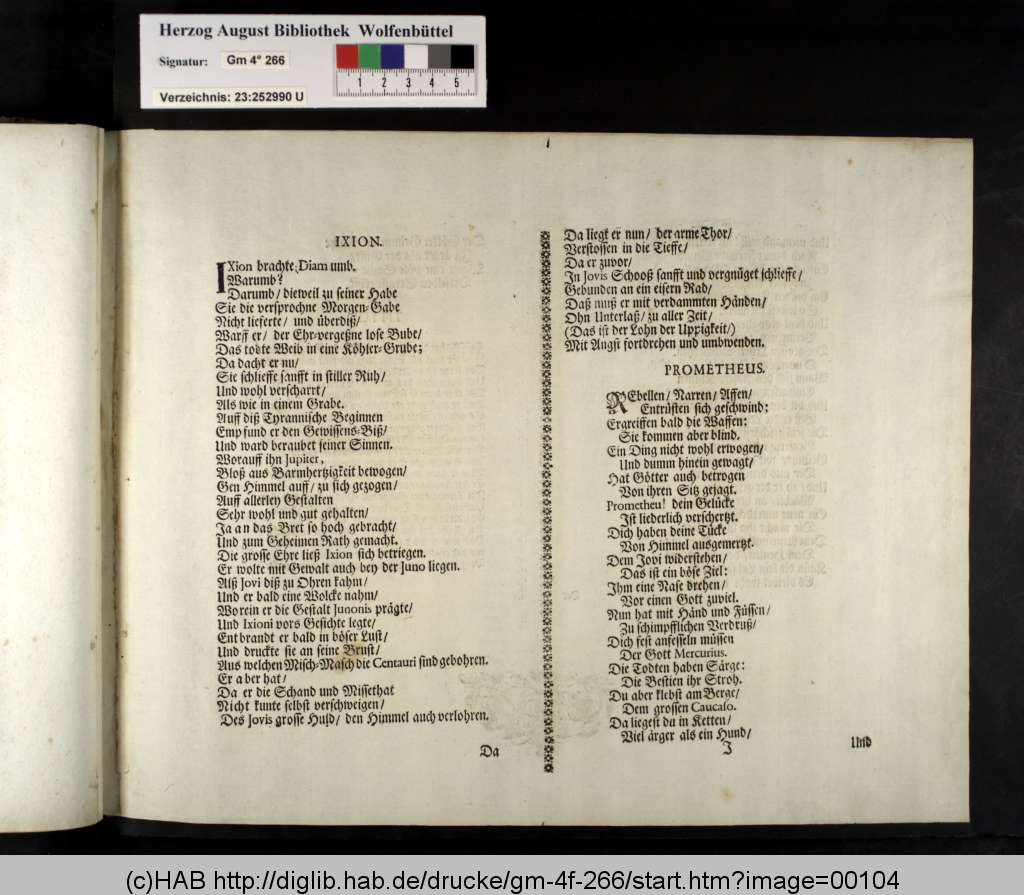 Herzog August Bibliothek Wolfenbüttel
Signatur: Gm 4° 266
1 2 3 4 5
Verzeichnis: 23:252990 U
IXION.
IXion brachte Diam umb.
Warumb?
Darumb/ dieweil zu seiner Habe
Sie die versprochne Morgen-Gabe
Nicht lieferte/ und überdiß/
Warff er/ der Ehr-vergeßne lose Bube/
Das todte Weib in eine Köhler-Grube;
Da dacht er nu/
Sie schlieffe sanfft in stiller Ruh/
Und wohl verscharrt/
Als wie in einem Grabe.
Auff diß Tyrannische Beginnen
Empfund er den Gewissens-Biß/
Und ward beraubet seiner Sinnen.
Worauff ihn Jupiter,
Bloß aus Barmhertzigkeit bewogen/
Gen Himmel auff/ zu sich gezogen/
Auff allerley Gestalten
Sehr wohl und gut gehalten/
Ja an das Bret so hoch gebracht/
Und zum Geheimen Rath gemacht.
Die grosse Ehre ließ Ixion sich betriegen.
Er wolte mit Gewalt auch bey der Juno liegen.
Alß Jovi diß zu Ohren kahm/
Und er bald eine Wolcke nahm/
Worein er die Gestalt Junonis prägte/
Und Ixioni vors Gesichte legte/
Entbrandt er bald in böser Lust/
Und druckte sie an seine Brust/
Aus welchen Misch-Masch die Centauri sind gebohren.
Er aber hat/
Da er die Schand und Missethat
Nicht kunte selbst verschweigen/
Des Jovis grosse Huld/ den Himmel auch verlohren.
Da
Da liegt er nun/ der arme Thor/
Verstossen in die Tieffe/
Da er zuvor/
In Jovis Schooß sanfft und vergnüget schlieffe/
Gebunden an ein eisern Rad/
Daß muß er mit verdammten Händen/
Ohn Unterlaß/ zu aller Zeit/
(Das ist der Lohn der Uppigkeit/)
Mit Angst fortdrehen und umbwenden.
PROMETHEUS.
REbellen/ Narren/ Affen/
Entrüsten sich geschwind:
Ergreiffen bald die Waffen:
Sie kommen aber blind.
Ein Ding nicht wohl erwogen/
Und dumm hinein gewagt/
Hat Götter auch betrogen
Von ihren Sitz gejagt.
Prometheu! dein Gelücke
Ist liederlich verschertzt.
Dich haben deine Tücke
Von Himmel ausgemertzt.
Dem Jovi widerstehen/
Das ist ein böse Ziel:
Ihm eine Nase drehen/
Vor einen Gott zuviel.
Nun hat mit Händ und Füssen/
Zu schimpfflichen Verdruß/
Dich fest anfesseln müssen
Der Gott Mercurius.
Die Todten haben Särge:
Die Bestien ihr Stroh.
Du aber klebst am Berge/
Dem grossen Caucaso.
Da liegest du in Ketten/
Viel ärger als ein Hund/
J
Und
(c)HAB http://diglib.hab.de/drucke/gm-4f-266/start.htm?image=00104